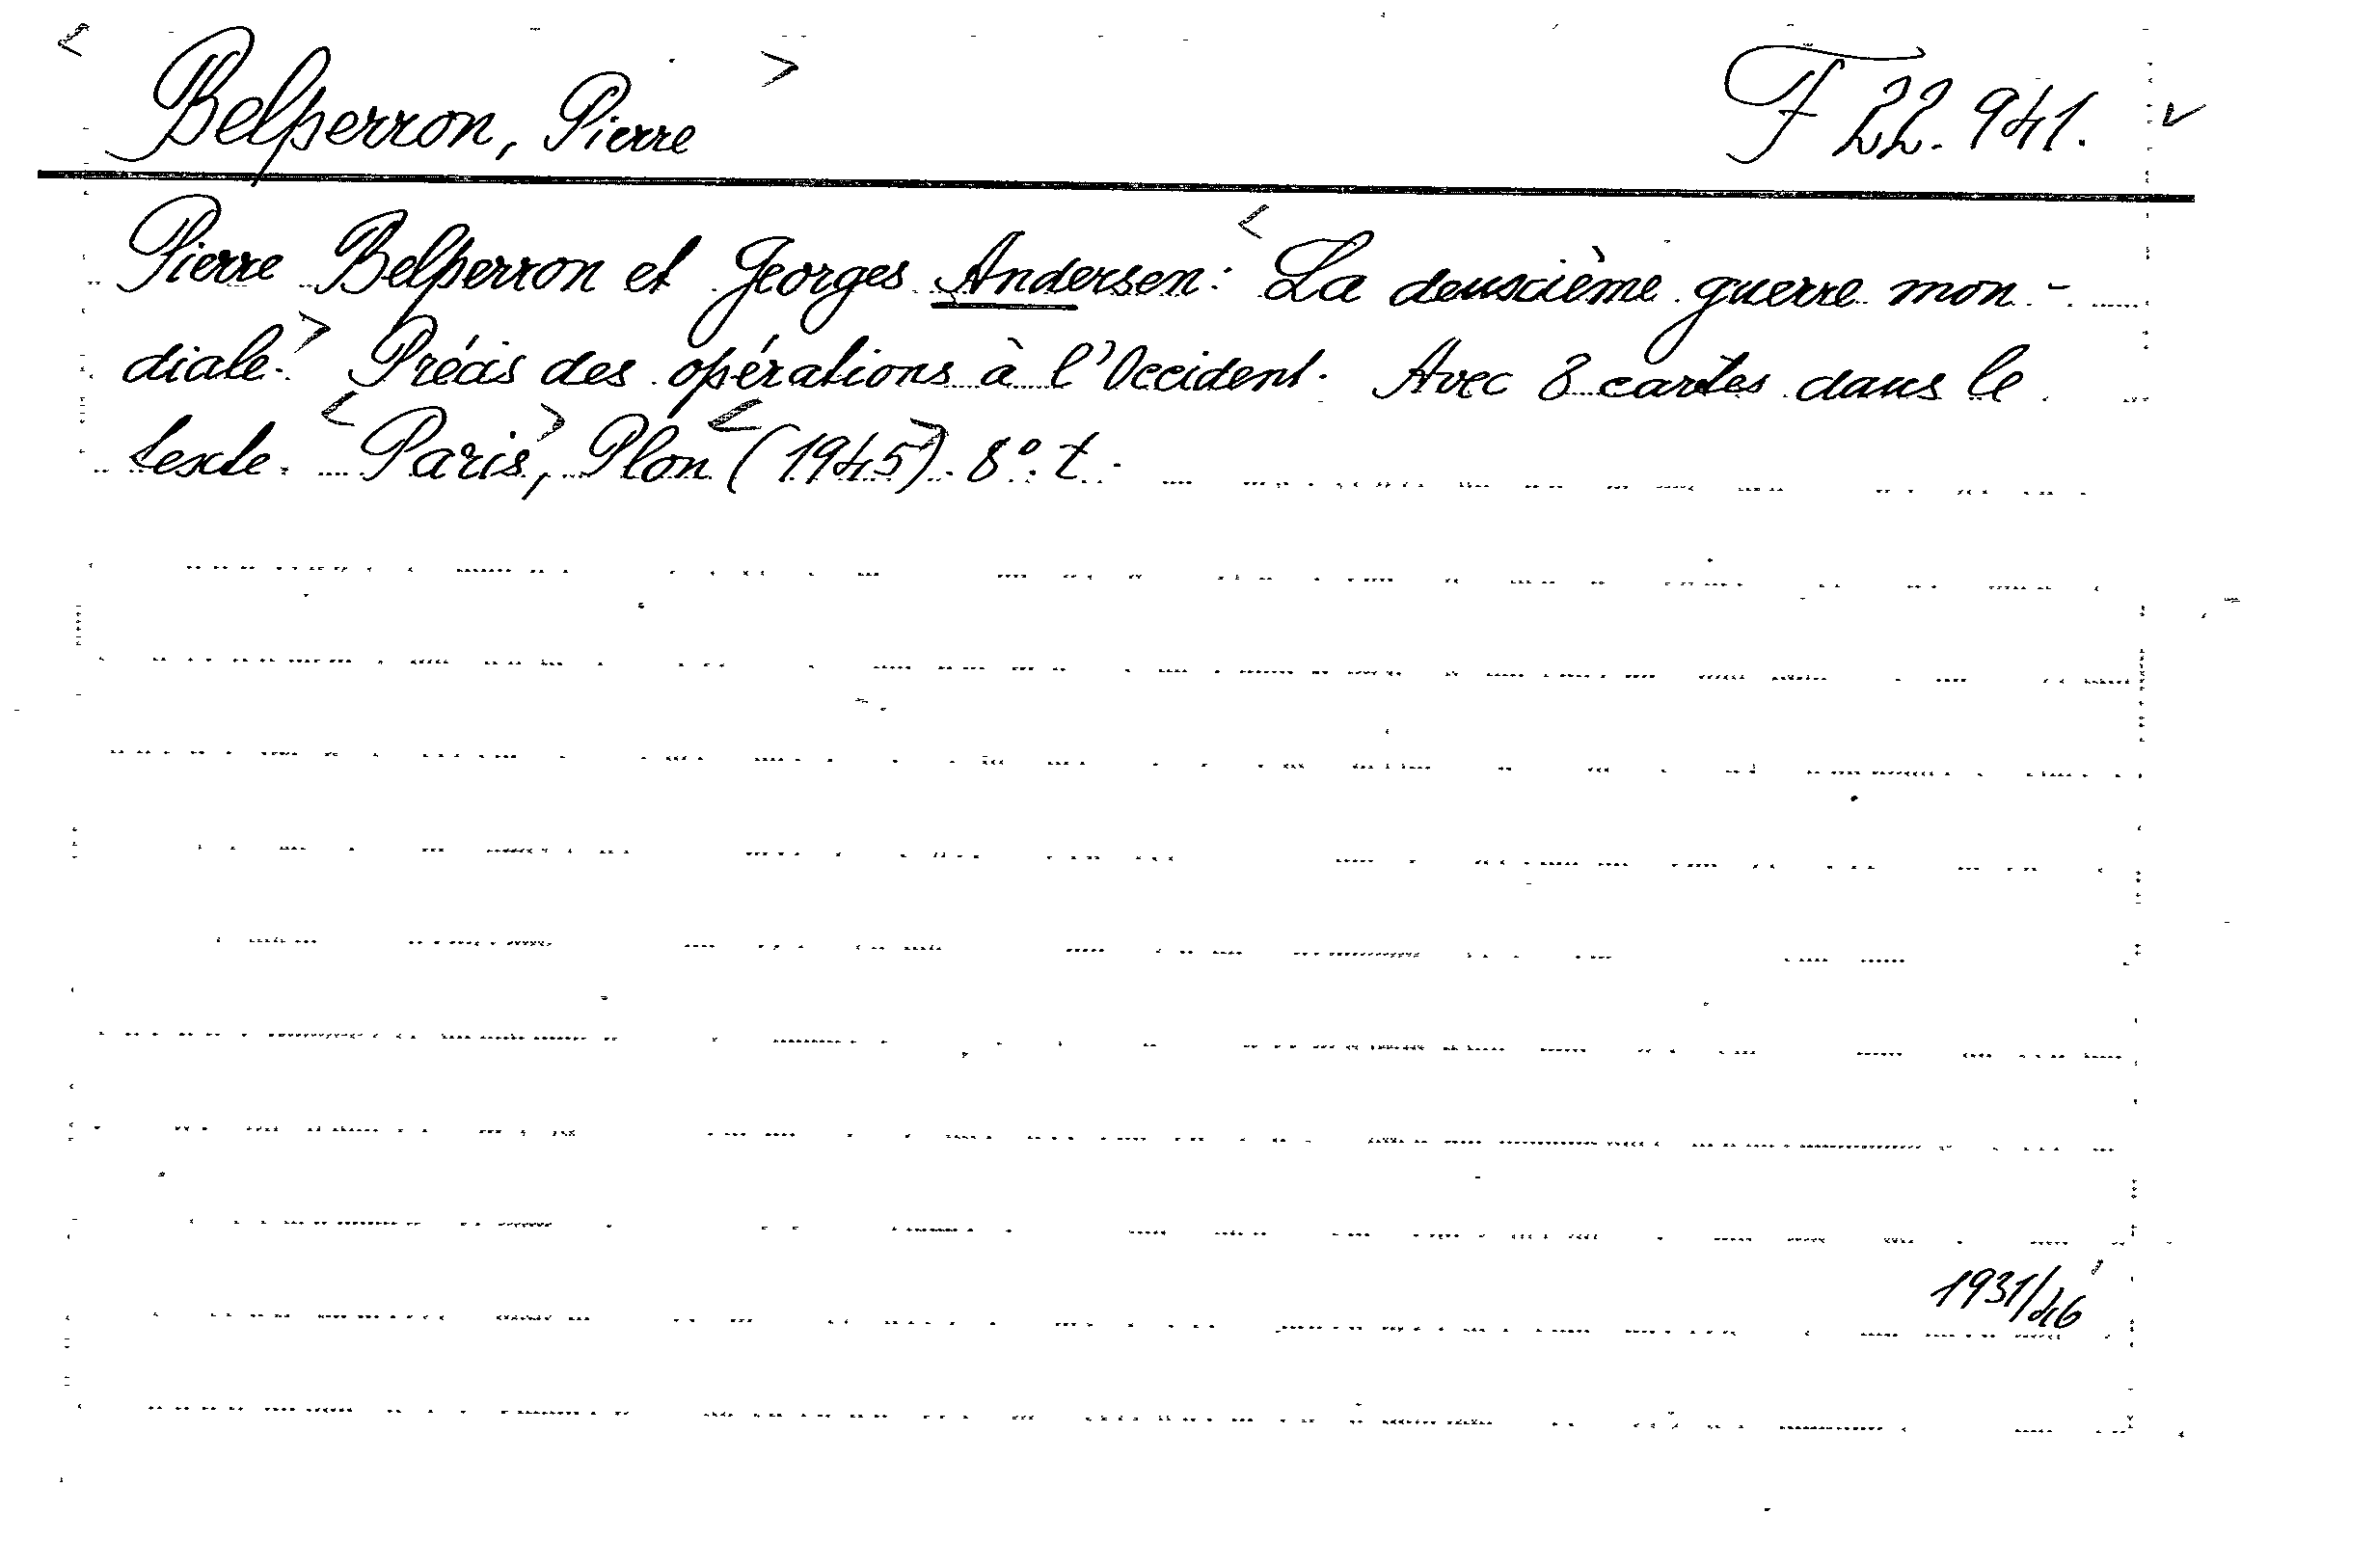 Belperron, Pierre F 22.941.
Pierre Belperron et Georges Andersen: La deuxième guerre mon-
diale. Précis des opérations à l'Occident. Avec 8 cartes dans le
texte. Paris, Plon (1945). 8°. t.
1931/46